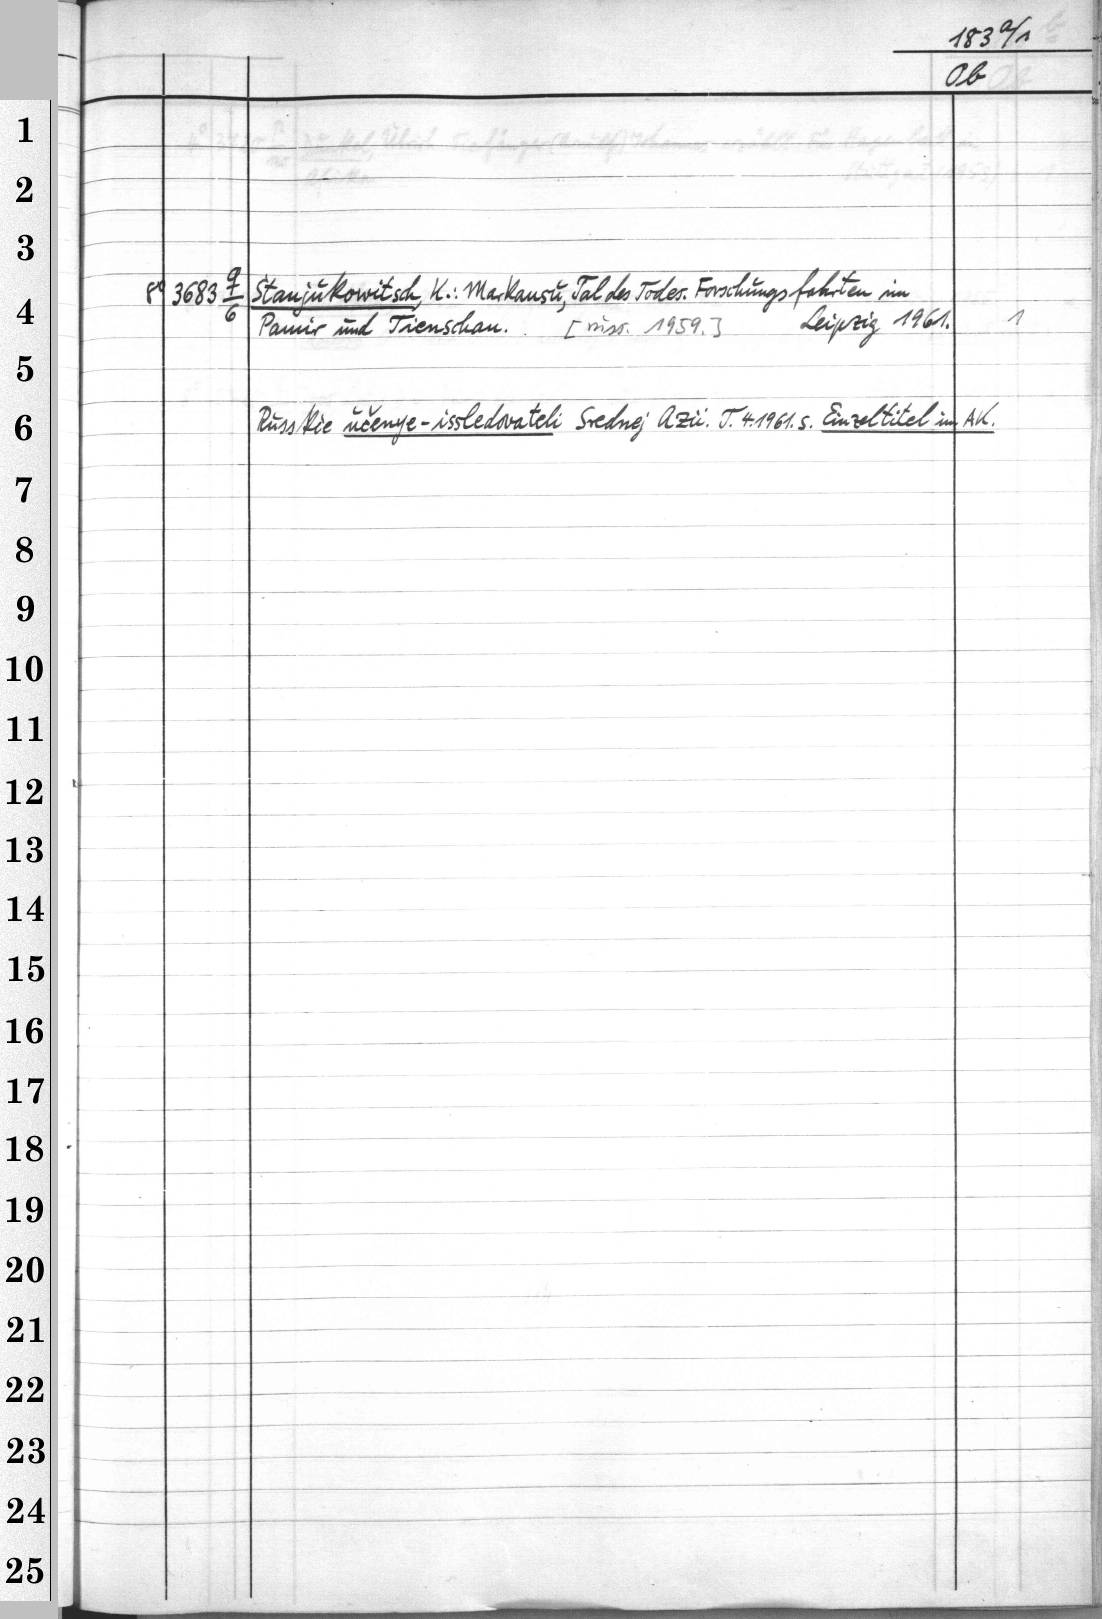 183 a/1
Ob
1
2
3
8° 3683 q/6 Stanjukowitsch, K.: Markansu, Tal des Todes. Forschungsfahrten im
4
Pamir und Tienschan. [russ. 1959.] Leipzig 1961. 1
5
6 Russkie učenye-issledovateli Srednej Azii. T. 4.1961. s. Einzeltitel im AK.
7
8
9
10
11
12
13
14
15
16
17
18
19
20
21
22
23
24
25